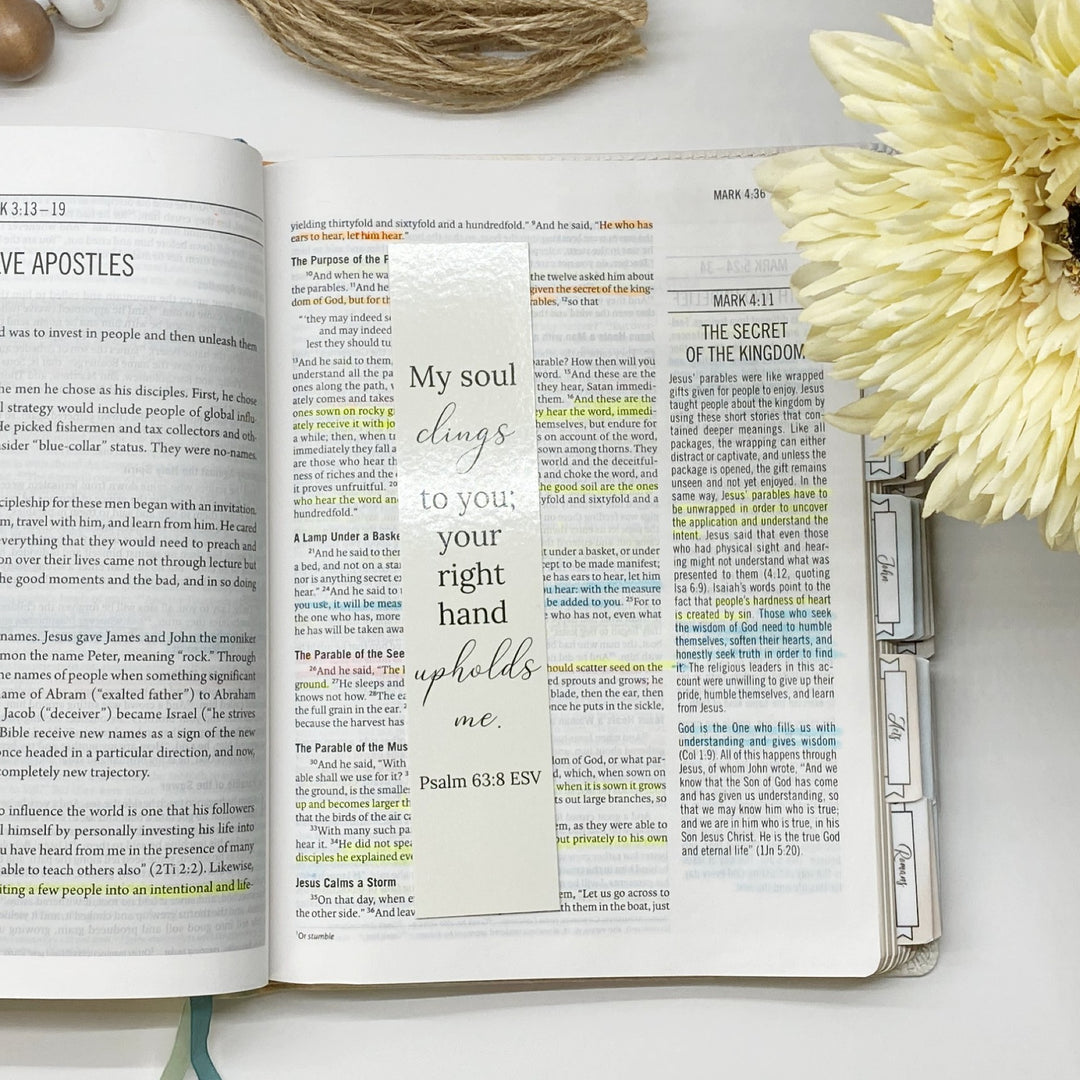 K 3:13–19
VE APOSTLES
d was to invest in people and then unleash them
he men he chose as his disciples. First, he chose
l strategy would include people of global influ-
He picked fishermen and tax collectors and oth-
nsider “blue-collar” status. They were no-names.
cipleship for these men began with an invitation,
m, travel with him, and learn from him. He cared
verything that they would need to preach and
on over their lives came not through lecture but
he good moments and the bad, and in so doing
names. Jesus gave James and John the moniker
mon the name Peter, meaning “rock.” Through
he names of people when something significant
ame of Abram (“exalted father”) to Abraham
Jacob (“deceiver”) became Israel (“he strives
Bible receive new names as a sign of the new
once headed in a particular direction, and now,
completely new trajectory.
o influence the world is one that his followers
l himself by personally investing his life into
u have heard from me in the presence of many
able to teach others also” (2Ti 2:2). Likewise,
iting a few people into an intentional and life-
MARK 4:36
yielding thirtyfold and sixtyfold and a hundredfold.” 9And he said, “He who has
ears to hear, let him hear.”
The Purpose of the P
10And when he wa the twelve asked him about
the parables. 11And he given the secret of the king-
dom of God, but for th rables, 12so that
“‘they may indeed s
and may indeed
lest they should tu
13And he said to them, parable? How then will you
understand all the pa word. 15And these are the
ones along the path, they hear, Satan immedi-
ately comes and takes them. 16And these are the
ones sown on rocky g ey hear the word, immedi-
ately receive it with jo themselves, but endure for
a while; then, when tr s on account of the word,
immediately they fall a sown among thorns. They
are those who hear th world and the deceitful-
ness of riches and the and choke the word, and
it proves unfruitful. 20 the good soil are the ones
who hear the word an yfold and sixtyfold and a
hundredfold.”
A Lamp Under a Baske
21And he said to ther t under a basket, or under
a bed, and not on a sta ept to be made manifest;
nor is anything secret ex he has ears to hear, let him
hear.” 24And he said to u hear: with the measure
you use, it will be meas be added to you. 25For to
the one who has, more who has not, even what
he has will be taken awa
The Parable of the See
26And he said, “The hould scatter seed on the
ground. 27He sleeps and ed sprouts and grows; he
knows not how. 28The ea blade, then the ear, then
the full grain in the ear. nce he puts in the sickle,
because the harvest has
The Parable of the Mus
30And he said, “With dom of God, or what par-
able shall we use for it? d, which, when sown on
the ground, is the smalle when it is sown it grows
up and becomes larger th ts out large branches, so
that the birds of the air ca
33With many such pa em, as they were able to
hear it. 34He did not spea but privately to his own
disciples he explained eve
Jesus Calms a Storm
35On that day, when e em, “Let us go across to
the other side.” 36And leav th them in the boat, just
1Or stumble
My soul
clings
to you;
your
right
hand
upholds
me.
Psalm 63:8 ESV
MARK 4:11
THE SECRET
OF THE KINGDOM
Jesus’ parables were like wrapped
gifts given for people to enjoy. Jesus
taught people about the kingdom by
using these short stories that con-
tained deeper meanings. Like all
packages, the wrapping can either
distract or captivate, and unless the
package is opened, the gift remains
unseen and not yet enjoyed. In the
same way, Jesus’ parables have to
be unwrapped in order to uncover
the application and understand the
intent. Jesus said that even those
who had physical sight and hear-
ing might not understand what was
presented to them (4:12, quoting
Isa 6:9). Isaiah’s words point to the
fact that people’s hardness of heart
is created by sin. Those who seek
the wisdom of God need to humble
themselves, soften their hearts, and
honestly seek truth in order to find
it. The religious leaders in this ac-
count were unwilling to give up their
pride, humble themselves, and learn
from Jesus.
God is the One who fills us with
understanding and gives wisdom
(Col 1:9). All of this happens through
Jesus, of whom John wrote, “And we
know that the Son of God has come
and has given us understanding, so
that we may know him who is true;
and we are in him who is true, in his
Son Jesus Christ. He is the true God
and eternal life” (1Jn 5:20).
John
Acts
Romans